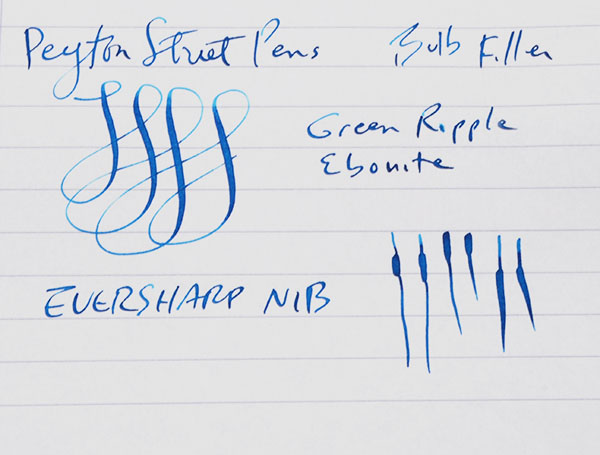 Peyton Street Pens
Bulb Filler
Green Ripple
Ebonite
EVERSHARP NIB